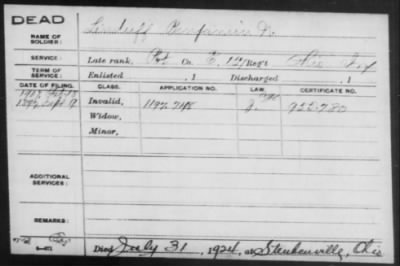 DEAD
NAME OF SOLDIER: Benjamin D.
SERVICE: Late rank, Pvt Co. E, 121 Reg't Ohio Inf
TERM OF SERVICE: Enlisted , 1 Discharged , 1
DATE OF FILING. CLASS. APPLICATION NO. LAW. CERTIFICATE NO.
1897 Sept 9 Invalid, 1197.718 955.780
Widow,
Minor,
ADDITIONAL SERVICES:
REMARKS:
Died July 31, 1924, at Steubenville, Ohio